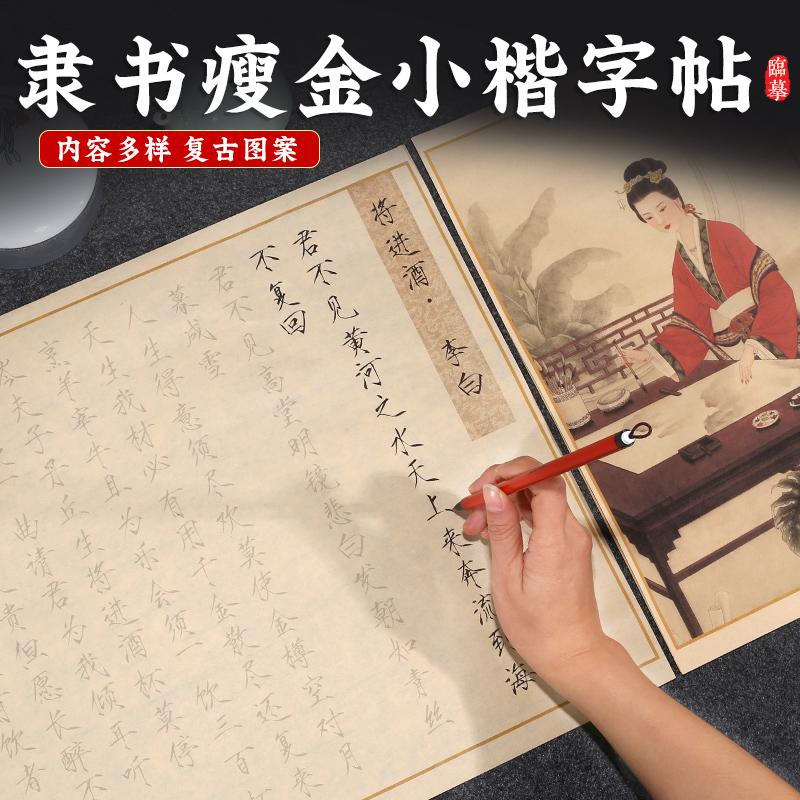 隶书瘦金小楷字帖
臨摹
内容多样 复古图案
将进酒·李白
君不见黄河之水天上来奔流到海
不复回
君不见高堂明镜悲白发朝如青丝
暮成雪
人生得意须尽欢莫使金樽空对月
天生我材必有用千金散尽还复来
烹羊宰牛且为乐会须一饮三百
岑夫子丹丘生将进酒杯莫停
一曲请君为我倾耳听
贵但愿长醉不
饮者